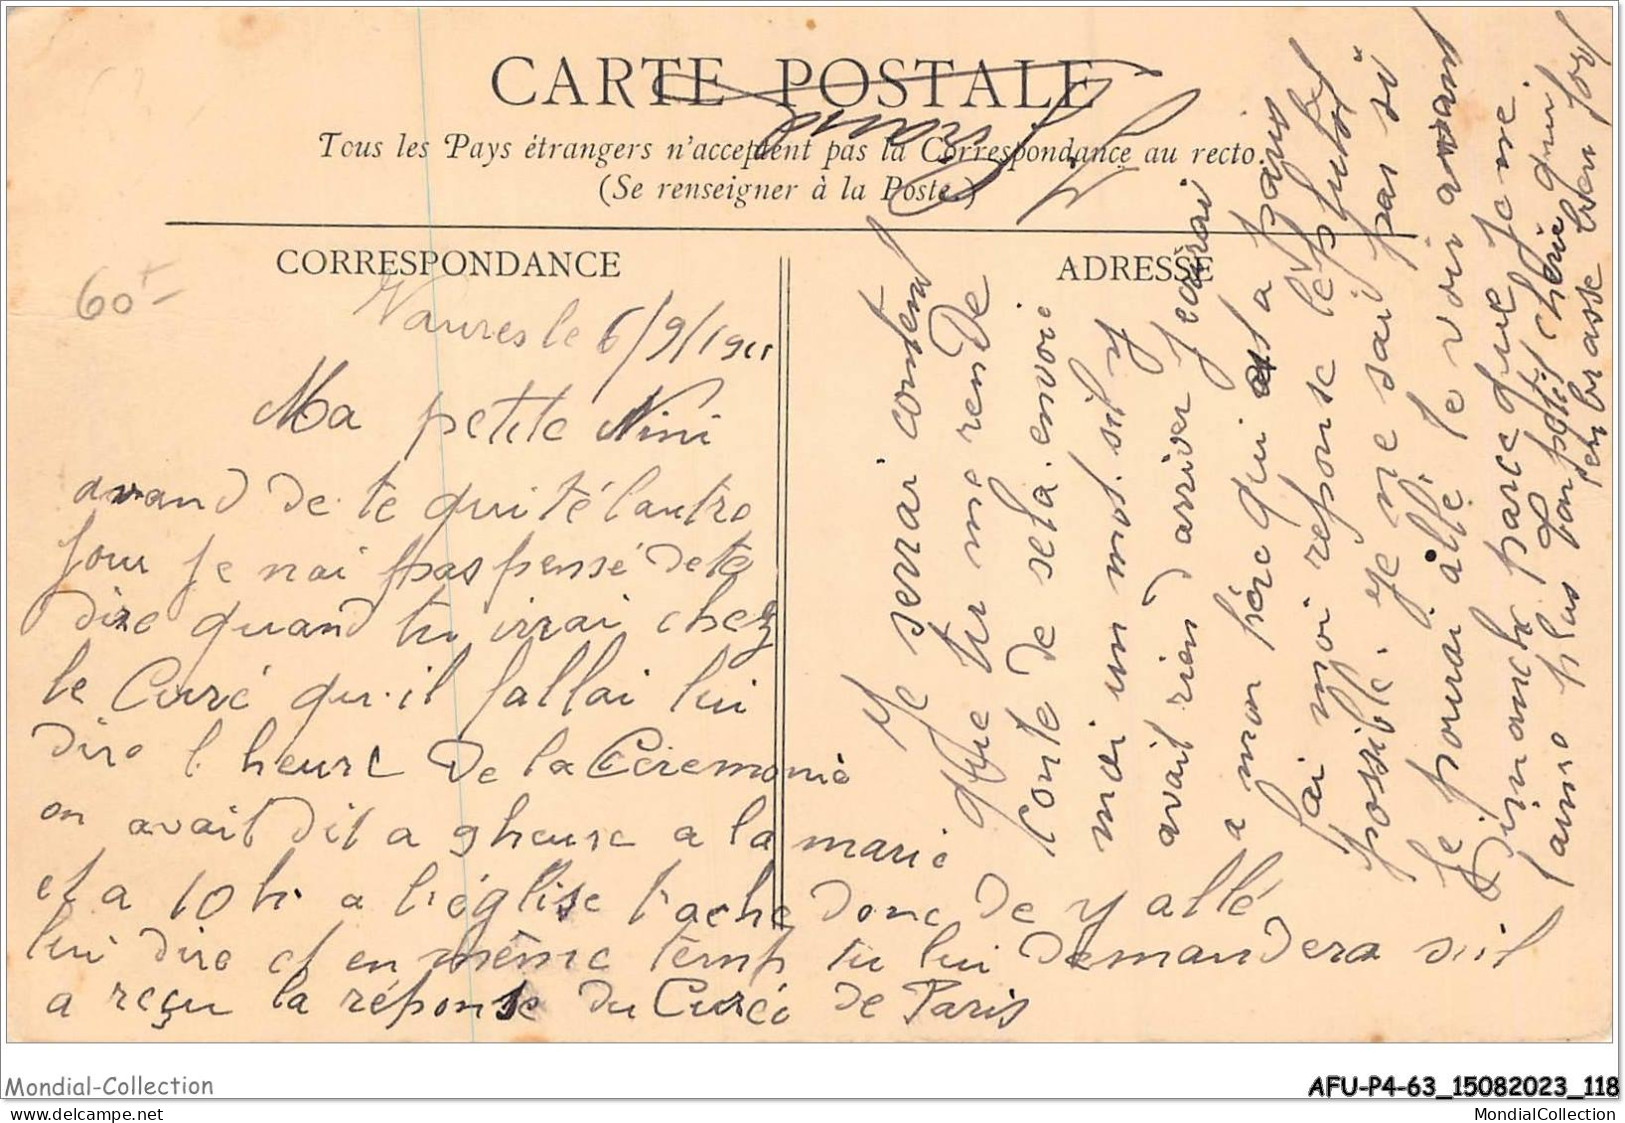 CARTE POSTALE
Tous les Pays étrangers n'acceptent pas la Correspondance au recto.
(Se renseigner à la Poste)
CORRESPONDANCE
ADRESSE
60
le 6/9/1911
Ma petite Nini
avand de te quité lautre
jour je nai pas pensé de te
dire quand tu irrai chez
le Curé qu'il fallai lui
dire l heure De la Cèremonie
on avait dit a 9 heure a la marie
et a 10 h. a l'église tache donc de y allé
lui dire et en même temp tu lui demandera s'il
a reçu la réponse du Curé de Paris
Je serrai contend
que tu me rende
conte de sela. envoie
moi un mot sil y
avait rien d arriver J ecrirai
a mon père qui est a paris
fai moi reponse le plutot
possible. Je ne sai pas si
Je pourrai allé te voir avant
Dimanche parce que je ne
ton petit cherie qui
t'embrasse bien fort
Mondial-Collection
AFU-P4-63_15082023_118
www.delcampe.net
MondialCollection